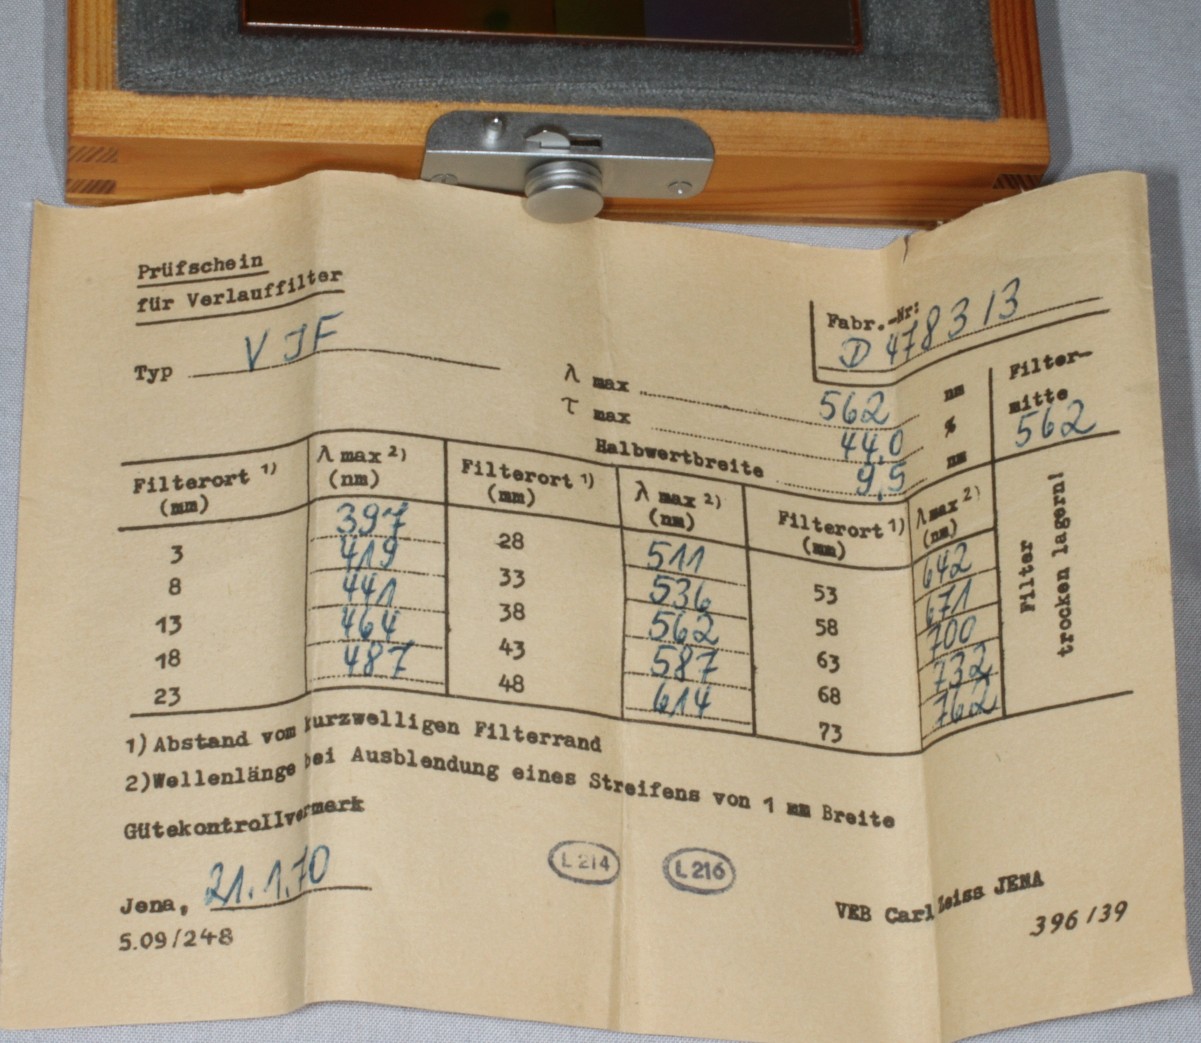 Prüfschein
für Verlauffilter
Fabr.-Nr:
D 478313
Typ VJF
λ max 562 nm
τ max 44,0 %
Halbwertbreite 9,5 nm
Filter-
mitte
562
Filterort 1) (mm) λ max 2) (nm) Filterort 1) (mm) λ max 2) (nm) Filterort 1) (mm) λ max 2) (nm)
3 397 28 511 53 642
8 419 33 536 58 671
13 441 38 562 63 700
18 464 43 587 68 732
23 487 48 614 73 762
Filter
trocken lagern!
1) Abstand vom kurzwelligen Filterrand
2) Wellenlänge bei Ausblendung eines Streifens von 1 mm Breite
Gütekontrollvermark
L 214 L 216
Jena, 21.1.70
VEB Carl Zeiss JENA
5.09/248
396/39